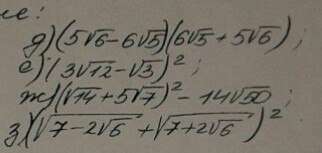 ие:
д) (5√6 - 6√5)(6√5 + 5√6);
е) (3√12 - √3)²;
ж) (√14 + 5√7)² - 14√50;
з) (√(7 - 2√6) + √(7 + 2√6))²